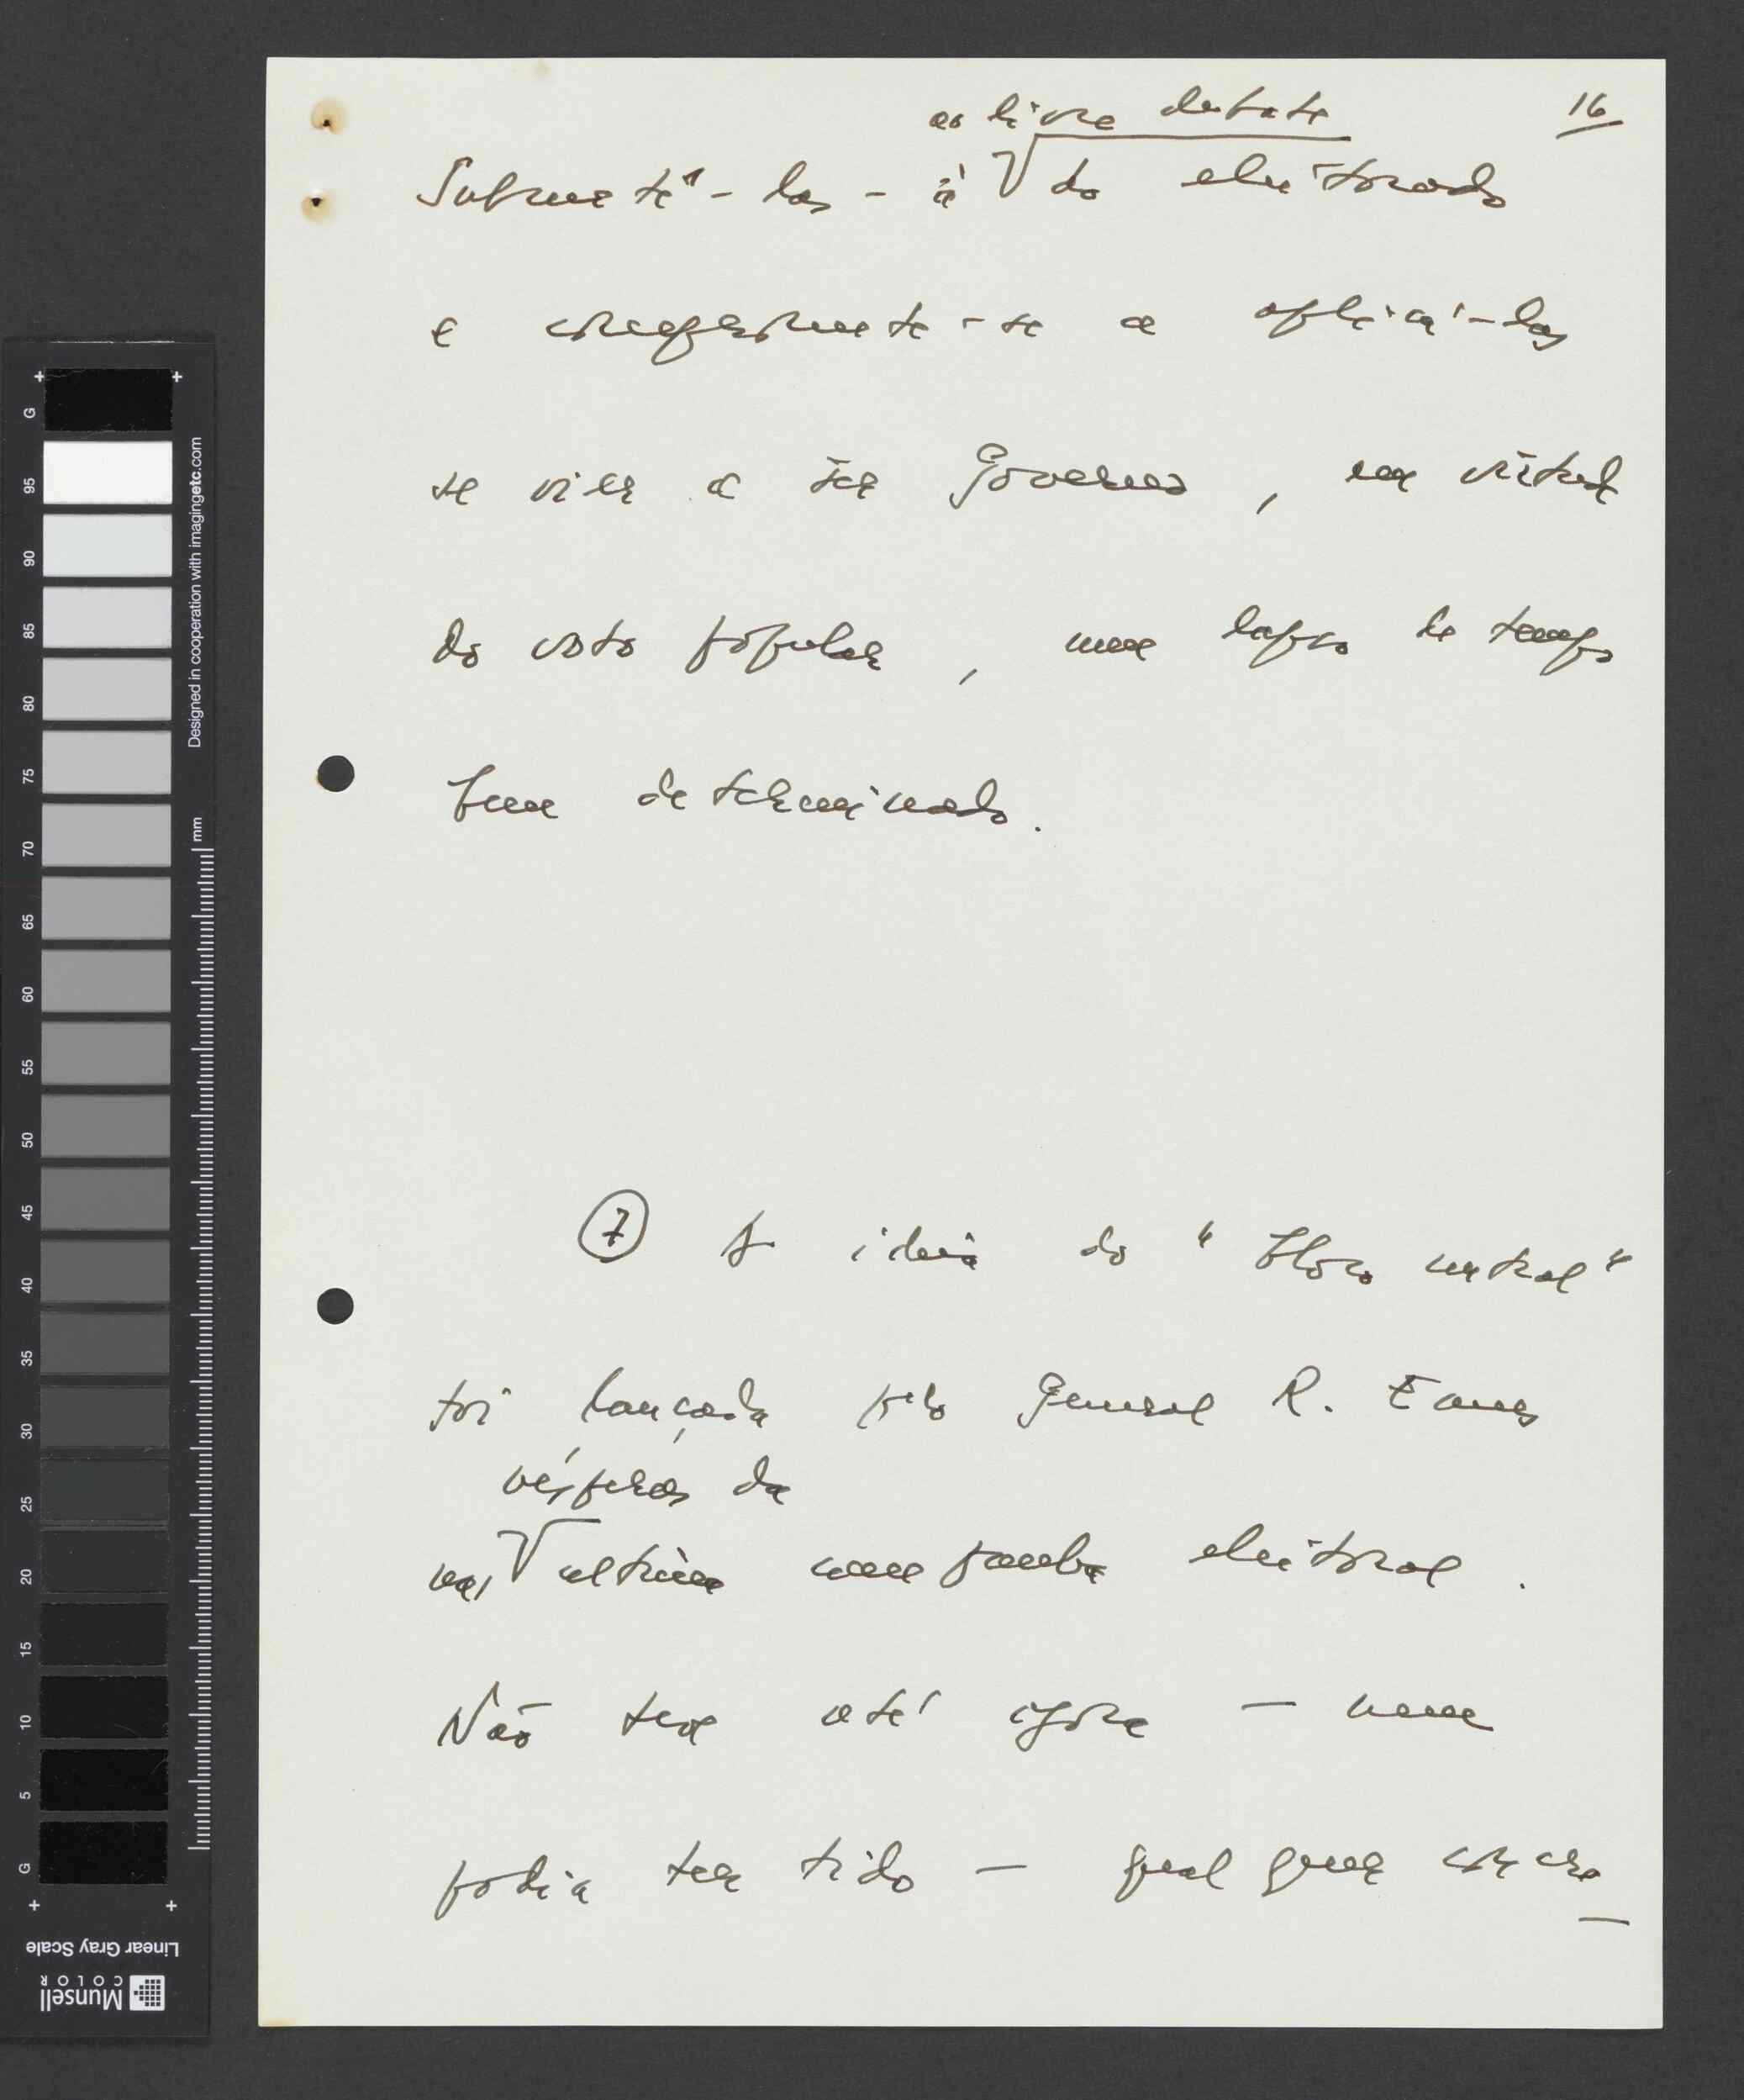 16
ao livre debate
Submetê-las-á do eleitorado
e compromete-se a aplicá-las
se vier a ser Governo, em virtude
do voto popular, num lapso de tempo
bem determinado.
7 A ideia do "bloco central"
foi lançada pelo General R. Eanes
vésperas da
nas última campanha eleitoral.
Não teve até agora — nem
podia ter tido — qualquer concre-
G
95
90
85
80
75
70
65
60
55
50
45
40
35
30
25
20
15
10
5
G
mm
Designed in cooperation with imagingetc.com
Linear Gray Scale
Munsell
COLOR